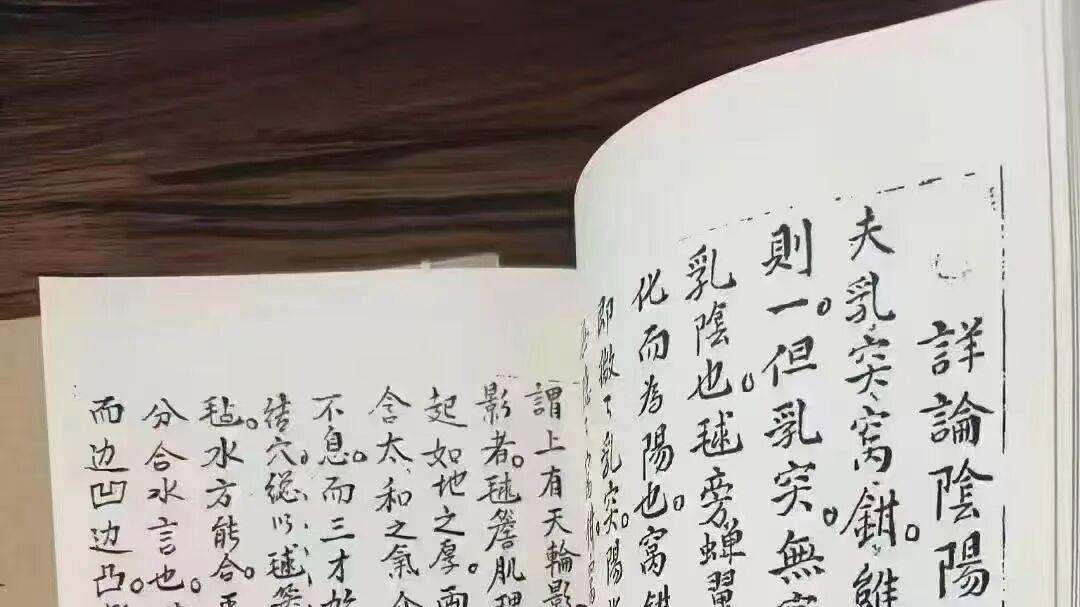 詳論陰陽
夫乳突窩鉗。雖
則一。但乳突。無窩
乳陰也。毬旁蟬翼
化而為陽也。窩鉗
即微了乳突。陽
謂上有天輪影
影者。毬簷肌理
起如地之厚。兩
含太和之氣
不息。而三才
结穴。總以毬簷
毡。水方能合。
分合水言也。
而边凹边凸。